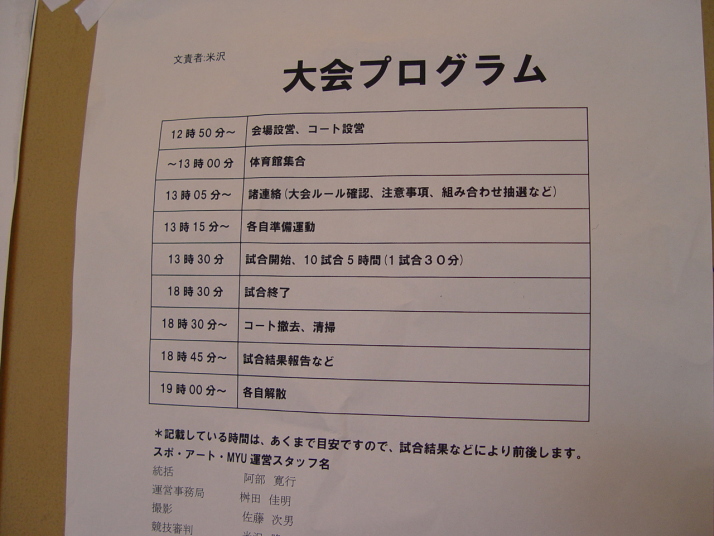 文責者:米沢
大会プログラム
12時50分～ 会場設営、コート設営
～13時00分 体育館集合
13時05分～ 諸連絡(大会ルール確認、注意事項、組み合わせ抽選など)
13時15分～ 各自準備運動
13時30分 試合開始、10試合5時間(1試合30分)
18時30分 試合終了
18時30分～ コート撤去、清掃
18時45分～ 試合結果報告など
19時00分～ 各自解散
＊記載している時間は、あくまで目安ですので、試合結果などにより前後します。
スポ・アート・MYU運営スタッフ名
統括 阿部 寛行
運営事務局 桝田 佳明
撮影 佐藤 次男
競技審判